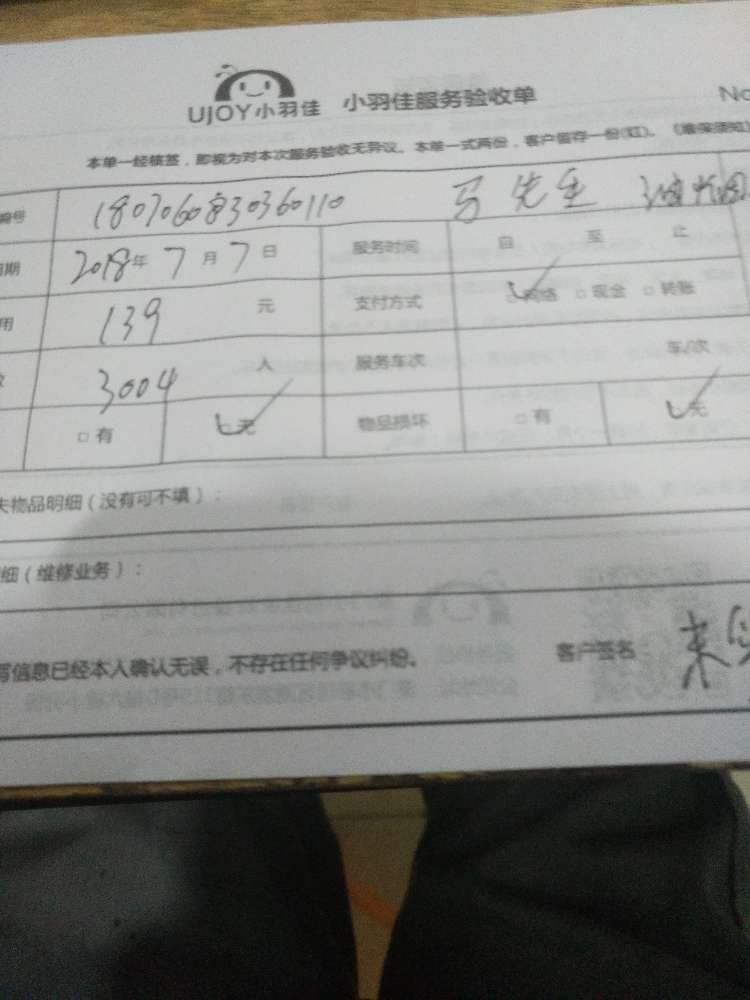 UJOY小羽佳 小羽佳服务验收单 No
本单一经核签，即视为对本次服务验收无异议。本单一式两份，客户留存一份(红)。《维保须知》
编号 1807060830360110 马先生
日期 2018年7月7日 服务时间 自 至 止
用 139 元 支付方式 网络 □ 现金 □ 转账
数 3004 人 服务车次 车/次
□ 有 无 物品损坏 □ 有 无
失物品明细（没有可不填）：
细（维修业务）：
写信息已经本人确认无误，不存在任何争议纠纷。 客户签名